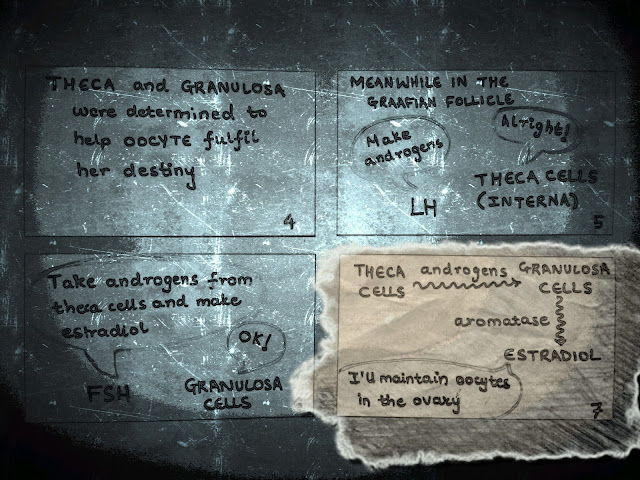 THECA and GRANULOSA
were determined to
help OOCYTE fulfil
her destiny
4
MEANWHILE IN THE
GRAAFIAN FOLLICLE
Make
androgens
Alright!
LH
THECA CELLS
(INTERNA)
5
Take androgens from
theca cells and make
estradiol
OK!
FSH
GRANULOSA
CELLS
THECA androgens GRANULOSA
CELLS CELLS
aromatase
ESTRADIOL
I'll maintain oocytes
in the ovary
7